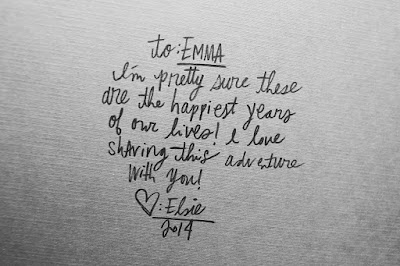 to: EMMA
I'm pretty sure these
are the happiest years
of our lives! I love
sharing this adventure
with you!
♡: Elsie
2014